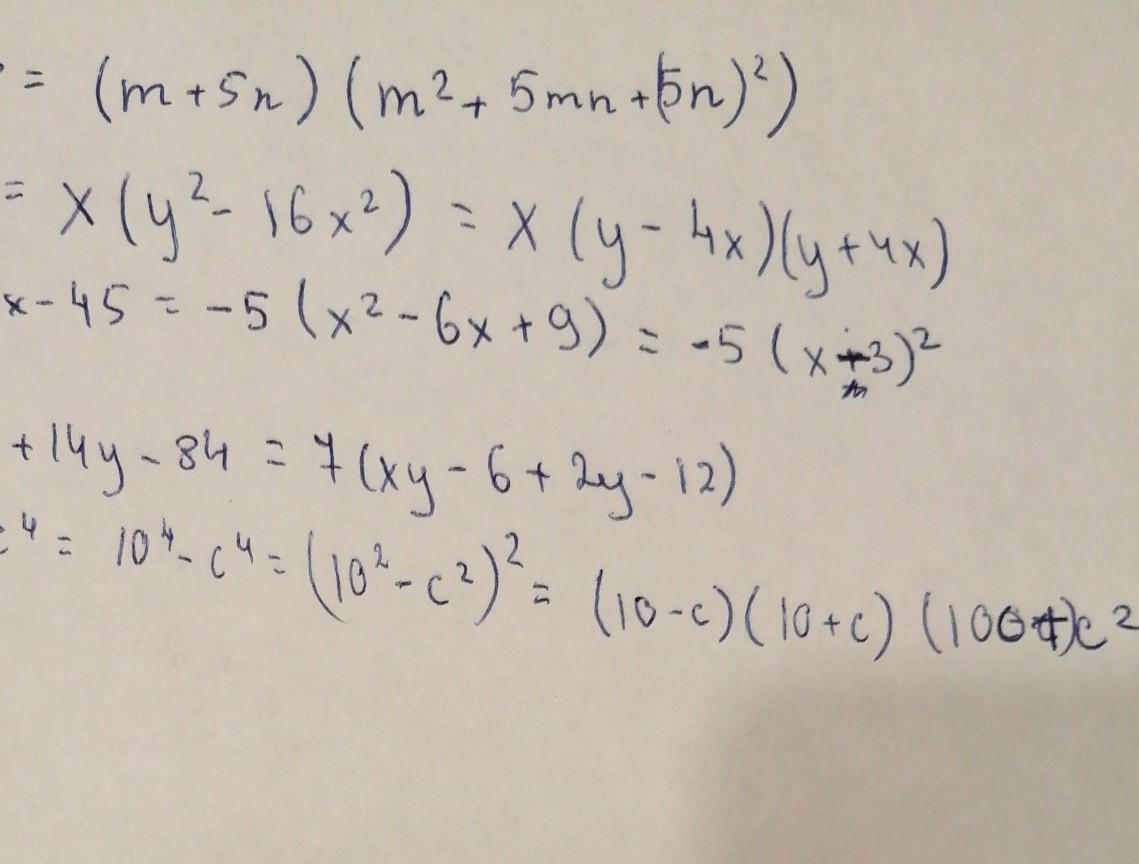 = (m+5n)(m²+5mn+(5n)²)
= x(y²-16x²) = x(y-4x)(y+4x)
x-45 = -5(x²-6x+9) = -5(x-3)²
+14y-84 = 7(xy-6+2y-12)
⁴= 10⁴-c⁴= (10²-c²)² = (10-c)(10+c)(100+c²